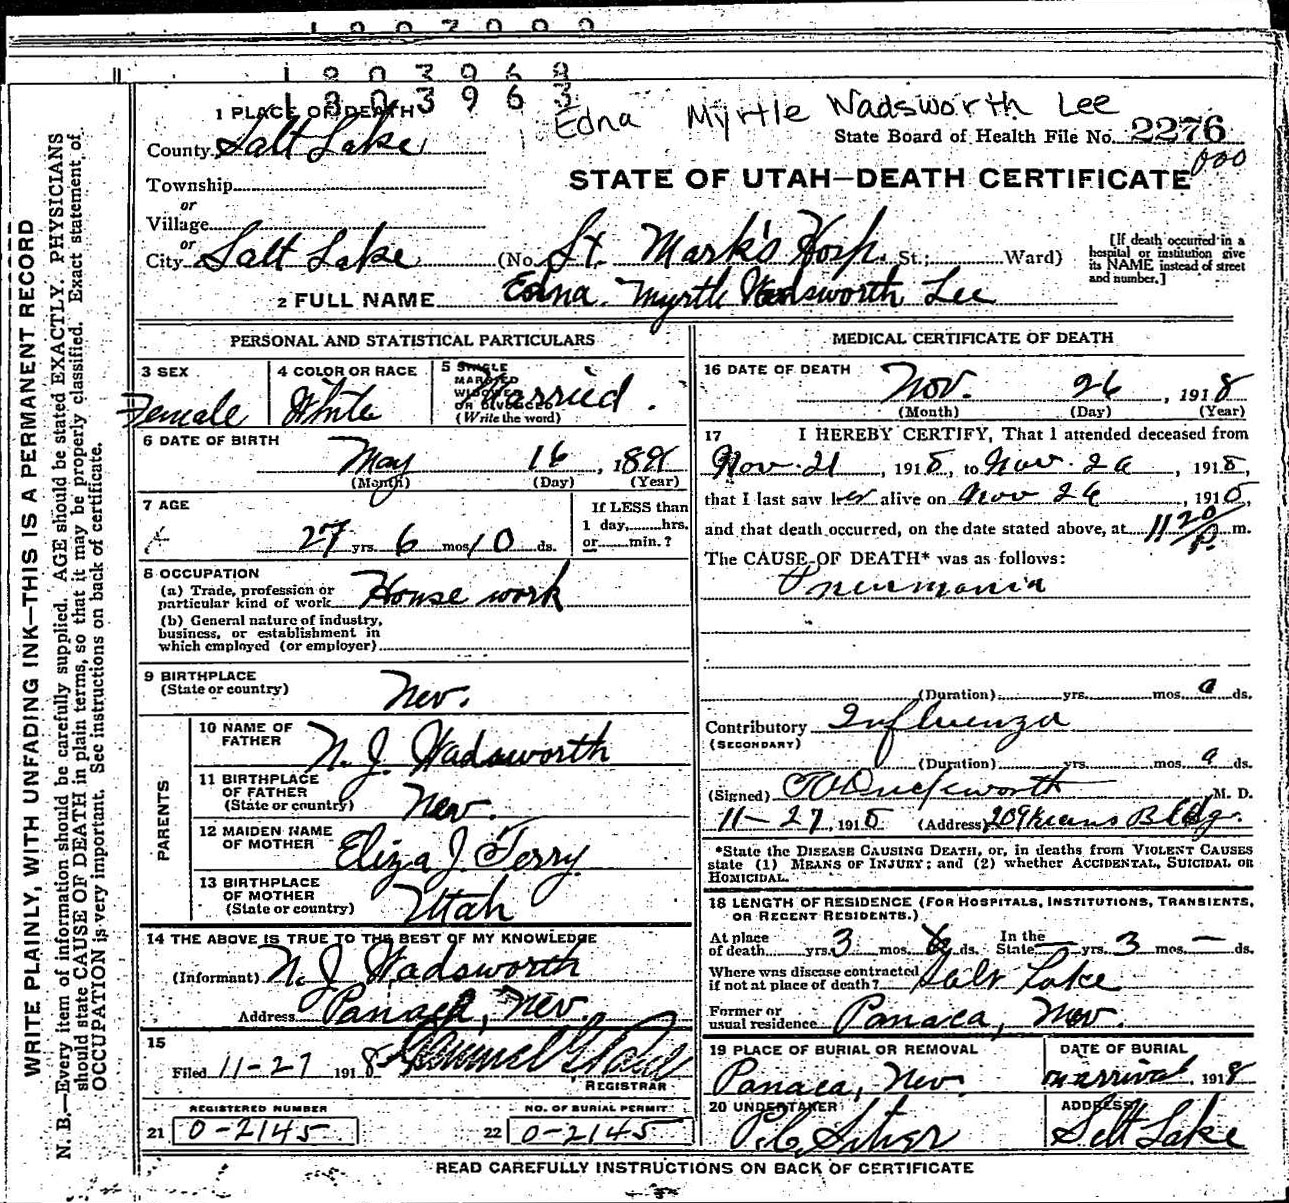 1903968
1303963
Edna Myrtle Wadsworth Lee
1 PLACE OF DEATH
State Board of Health File No. 2276
000
County Salt Lake
STATE OF UTAH—DEATH CERTIFICATE
Township
or
Village
or
City Salt Lake (No. St. Mark's Hosp. St.; Ward)
[If death occurred in a hospital or institution give its NAME instead of street and number.]
2 FULL NAME Edna Myrtle Wadsworth Lee
PERSONAL AND STATISTICAL PARTICULARS
3 SEX Female
4 COLOR OR RACE White
5 SINGLE MARRIED WIDOWED OR DIVORCED (Write the word) Married.
6 DATE OF BIRTH
May 16, 1891
(Month) (Day) (Year)
7 AGE
27 yrs. 6 mos. 10 ds.
If LESS than
1 day, hrs.
or min.?
8 OCCUPATION
(a) Trade, profession or
particular kind of work House work
(b) General nature of industry,
business, or establishment in
which employed (or employer)
9 BIRTHPLACE
(State or country) Nev.
PARENTS
10 NAME OF
FATHER N. J. Wadsworth
11 BIRTHPLACE
OF FATHER
(State or country) Nev.
12 MAIDEN NAME
OF MOTHER Eliza J. Terry
13 BIRTHPLACE
OF MOTHER
(State or country) Utah
14 THE ABOVE IS TRUE TO THE BEST OF MY KNOWLEDGE
(Informant) N. J. Wadsworth
Address Panaca, Nev.
15
Filed 11-27 1918
REGISTRAR
REGISTERED NUMBER
21 0-2145
NO. OF BURIAL PERMIT
22 0-2145
MEDICAL CERTIFICATE OF DEATH
16 DATE OF DEATH
Nov. 26, 1918
(Month) (Day) (Year)
17 I HEREBY CERTIFY, That I attended deceased from
Nov. 21, 1918, to Nov. 26, 1918,
that I last saw her alive on Nov 26, 1918,
and that death occurred, on the date stated above, at 11 20/P. m.
The CAUSE OF DEATH* was as follows:
Pneumonia
(Duration) yrs. mos. ds.
Contributory Influenza
(SECONDARY)
(Duration) yrs. mos. ds.
(Signed) M. D.
11-27, 1918 (Address) Bldg.
*State the DISEASE CAUSING DEATH, or, in deaths from VIOLENT CAUSES
state (1) MEANS OF INJURY; and (2) whether ACCIDENTAL, SUICIDAL OR
HOMICIDAL.
18 LENGTH OF RESIDENCE (FOR HOSPITALS, INSTITUTIONS, TRANSIENTS,
OR RECENT RESIDENTS.)
At place of death yrs. 3 mos. ds. In the State — yrs. 3 mos. — ds.
Where was disease contracted
if not at place of death? Salt Lake
Former or
usual residence Panaca, Nev.
19 PLACE OF BURIAL OR REMOVAL
Panaca, Nev.
DATE OF BURIAL
on arrival, 1918
20 UNDERTAKER
ADDRESS
Salt Lake
READ CAREFULLY INSTRUCTIONS ON BACK OF CERTIFICATE
WRITE PLAINLY, WITH UNFADING INK—THIS IS A PERMANENT RECORD
N. B.—Every item of information should be carefully supplied. AGE should be stated EXACTLY. PHYSICIANS
should state CAUSE OF DEATH in plain terms, so that it may be properly classified. Exact statement of
OCCUPATION is very important. See instructions on back of certificate.